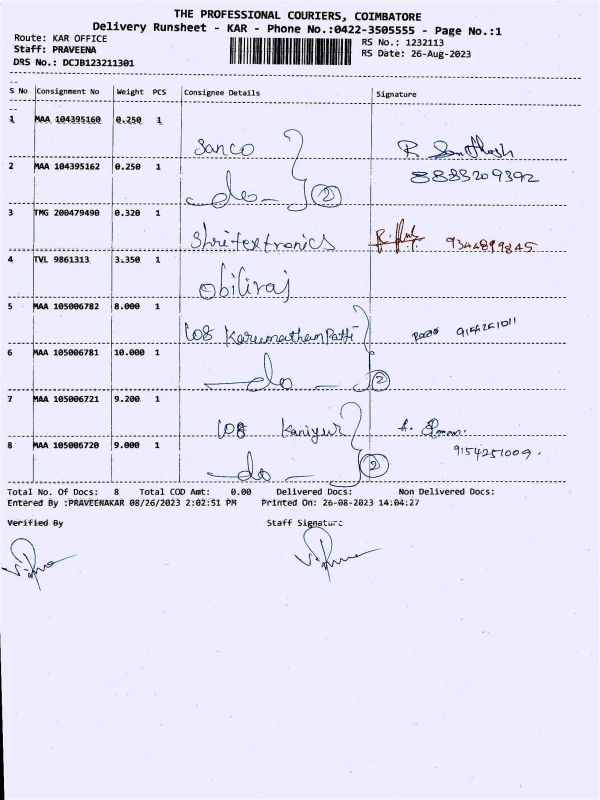 THE PROFESSIONAL COURIERS, COIMBATORE
Delivery Runsheet - KAR - Phone No.:0422-3505555 - Page No.:1
Route: KAR OFFICE
RS No.: 1232113
Staff: PRAVEENA
RS Date: 26-Aug-2023
DRS No.: DCJB123211301
S No Consignment No Weight PCS Consignee Details Signature
1 MAA 104395160 0.250 1 Sanco R. Santhosh
2 MAA 104395162 0.250 1 -do- 2 8883209392
3 TMG 200479490 0.320 1 Shritextronics 9344899845
4 TVL 9861313 3.350 1 Obiliraj
5 MAA 105006782 8.000 1 108 KarumathamPatti 9154251011
6 MAA 105006781 10.000 1 -do- 2
7 MAA 105006721 9.200 1 108 Kaniyur
8 MAA 105006720 9.000 1 -do- 2 9154251009.
Total No. Of Docs: 8 Total COD Amt: 0.00 Delivered Docs: Non Delivered Docs:
Entered By :PRAVEENAKAR 08/26/2023 2:02:51 PM Printed On: 26-08-2023 14:04:27
Verified By Staff Signature